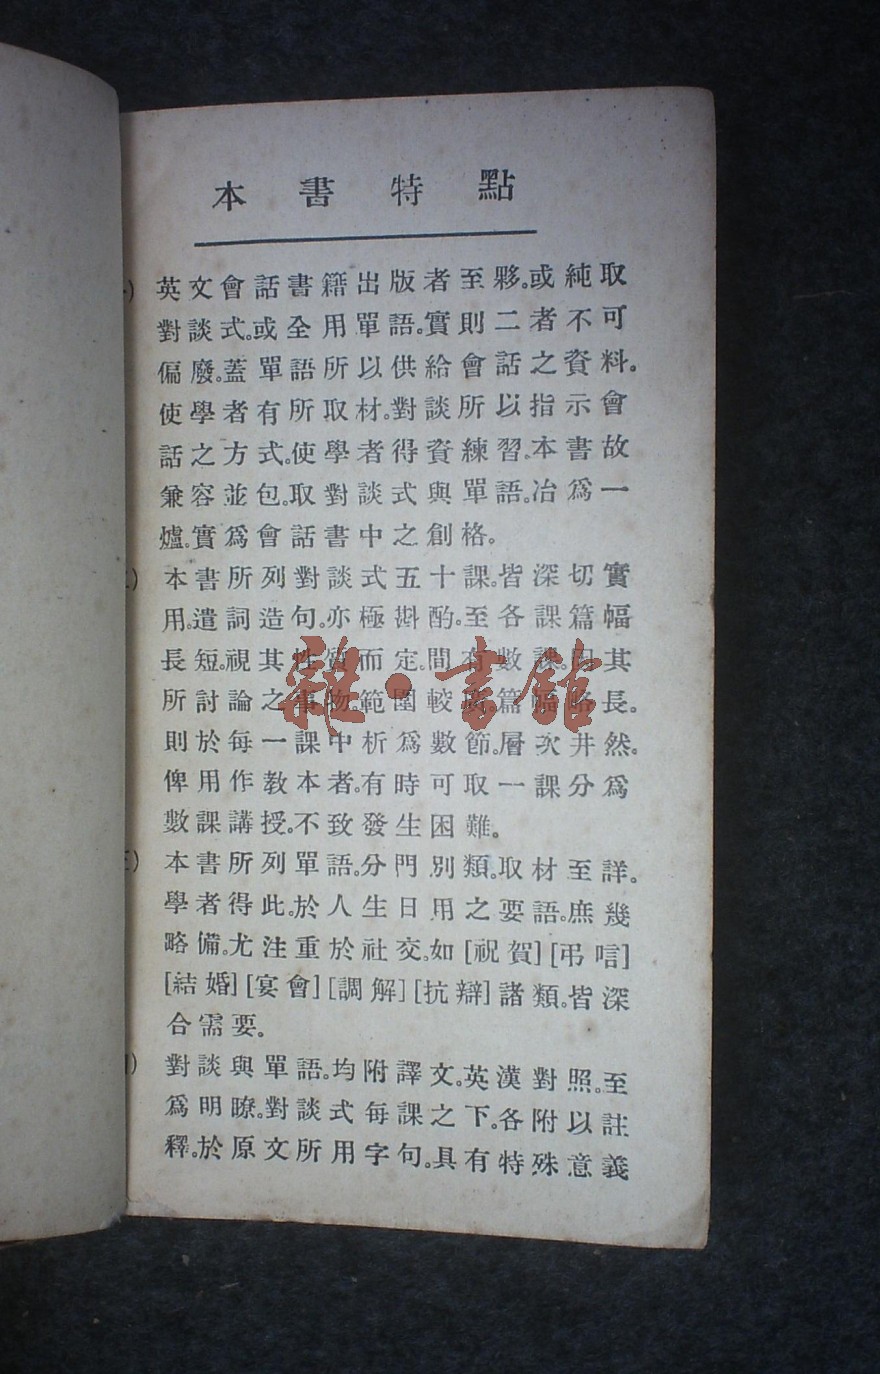 本書特點
英文會話書籍出版者至夥。或純取
對談式。或全用單語。實則二者不可
偏廢。蓋單語所以供給會話之資料。
使學者有所取材。對談所以指示會
話之方式。使學者得資練習。本書故
兼容並包。取對談式與單語。冶爲一
爐。實爲會話書中之創格。
本書所列對談式五十課。皆深切實
用。遣詞造句。亦極斟酌。至各課篇幅
長短。視其性質而定。間有數課。因其
所討論之事物。範圍較廣。篇幅略長。
則於每一課中析爲數節。層次井然。
俾用作教本者。有時可取一課分爲
數課講授。不致發生困難。
三) 本書所列單語。分門別類。取材至詳。
學者得此。於人生日用之要語。庶幾
略備。尤注重於社交。如[祝賀][弔唁]
[結婚][宴會][調解][抗辯]諸類。皆深
合需要。
對談與單語。均附譯文。英漢對照。至
爲明瞭。對談式每課之下。各附以註
釋。於原文所用字句。具有特殊意義
雜·書館